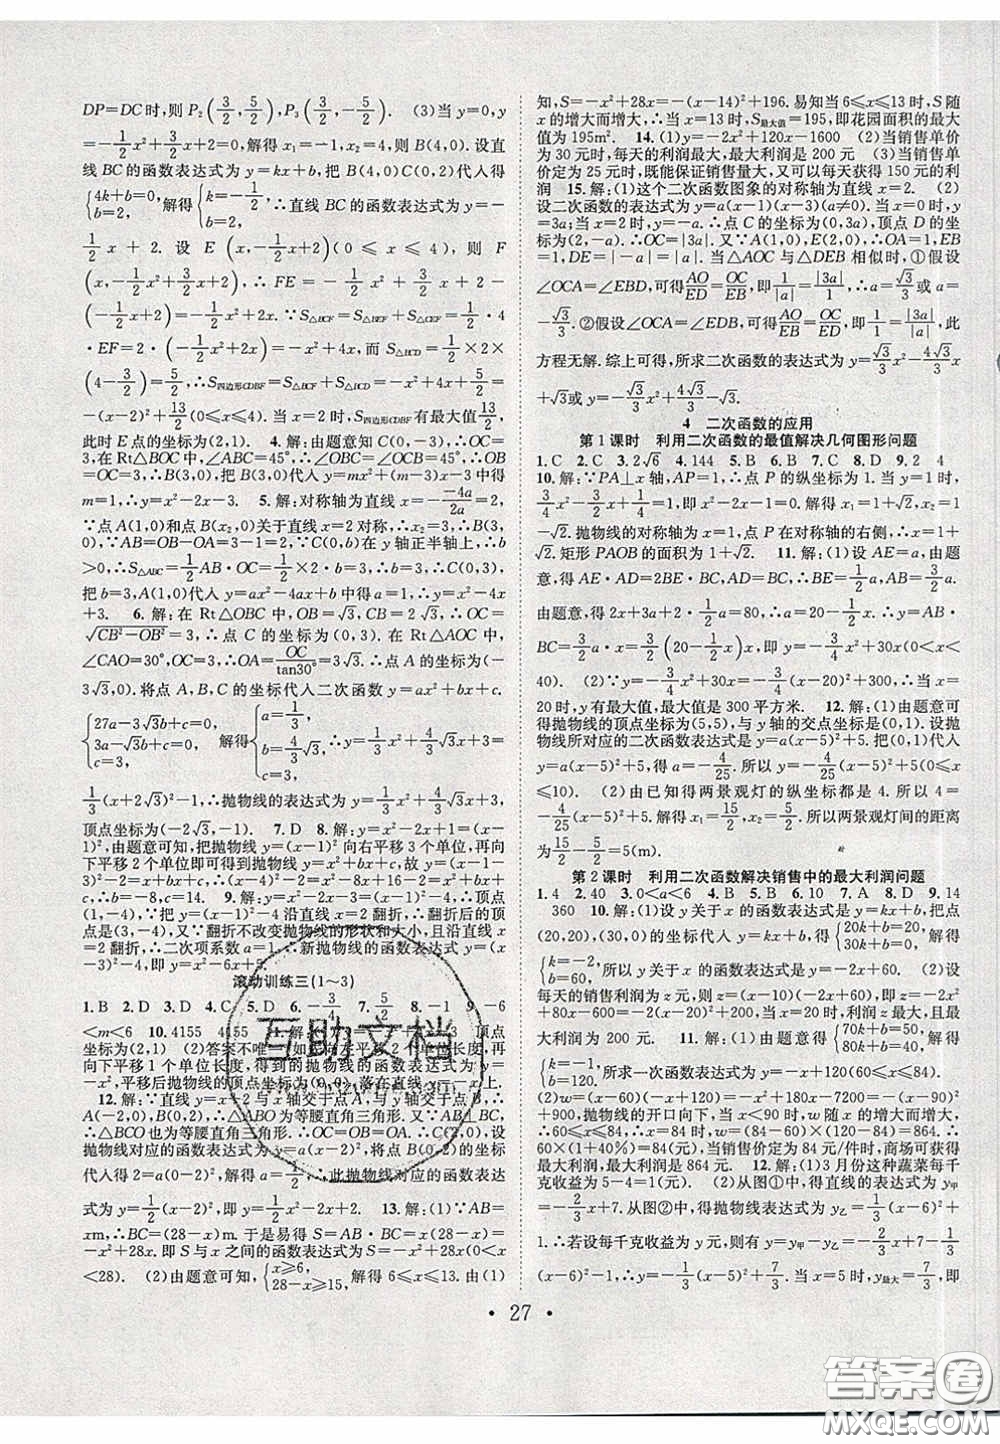 DP=DC时,则 P₂(3/2,5/2),P₃(3/2,-5/2). (3)当 y=0,y
=-1/2x²+3/2x+2=0,解得 x₁=-1,x₂=4,则 B(4,0). 设直
线 BC的函数表达式为 y=kx+b,把 B(4,0)C(0,2)代入得
{4k+b=0, b=2, 解得{k=-1/2, b=2, ∴直线 BC 的函数表达式为 y=-
1/2x+2. 设 E(x,-1/2x+2)(0≤x≤4),则 F
(x,-1/2x²+3/2x+2),∴FE=-1/2x²+3/2x+2-
(-1/2x+2)=-1/2x²+2x. ∵S△BCF=S△BEF+S△CEF=1/2·4
·EF=2(-1/2x²+2x)=-x²+4x,而 S△BCD=1/2×2×
(4-3/2)=5/2,∴S四边形CDBF=S△BCF+S△BCD=-x²+4x+5/2=
-(x-2)²+13/2(0≤x≤4). 当 x=2时,S四边形CDBF有最大值13/2,
此时 E点的坐标为(2,1). 4.解:由题意可知 C(0,-3),OC=
3. 在 Rt△BOC 中,∠ABC=45°,∴∠OCB=45°=∠ABC,
∴OC=OB=3,∴B(3,0). 将 B(3,0)代入 y=mx²-2mx-3中得
m=1,∴y=x²-2x-3. 5.解:对称轴为直线 x=-(-4a)/2a=2,
∵点 A(1,0)和点 B(x₂,0)关于直线 x=2 对称,∴x₂=3,∴B(3,
0),∴AB=OB-OA=3-1=2,∵抛物线与 y轴正半轴相交,∴
b>0,∵S△ABC=1/2AB·OC=1/2×2×OC=3,∴OC=3,即 C(0,
b),∴b=3,把 A(1,0)代入 y=ax²-4ax+b 中得 a=1,∴y=x²-4x
+3. 6.解:在 Rt△OBC 中,OB=√3,CB=2√3,∴OC=
√(CB²-OB²)=3,∴点 C 的坐标为(0,3). 在 Rt△AOC 中,
∠CAO=30°,∴OA=OC/tan30°=3√3,∴点 A 的坐标为(-
3√3,0).将点 A,B,C 的坐标代入二次函数 y=ax²+bx+c.
{27a-3√3b+c=0, 3a-√3b+c=0, c=3, 解得{a=1/3, b=4/3√3, c=3, ∴y=1/3x²+4/3√3x+3=
1/3(x+2√3)²-1,∴抛物线的表达式为 y=1/3x²+4/3√3x+3,
顶点坐标为(-2√3,-1). 7.D 8.解:y=x²-2x+1=(x-
1)²,由题意可知,把抛物线 y=(x-1)² 向右平移 3 个单位,再向
下平移 2 个单位即可得到抛物线 y=x²+bx+c,故 y=x²+bx+c
=(x-4)²-2=x²-8x+14,x²+bx+c=x²-8x+14,
∴b=-8,c=14. 9.解:y=x²-6x+5=(x-3)²-4,∴抛物
线顶点为(3,-4),将抛物线 y=x²-6x+5 沿直线 x=1 翻折后的顶
点是(-1,-4). ∵翻折不改变抛物线的形状和大小,且沿直线 x
=1翻折,∴二次项系数 a=1,∴新抛物线的函数表达式 y=(x-
3)²-4,即 y=x²-6x+5.
滚动训练三(1~3)
1.B 2.D 3.A 4.C 5.D 6.1/2 7.5/2 8.-1 9.-6
<m<6 10.4155 4155 11.解:(1) 3 顶点
坐标为(2,1) (2)答案不唯一,如先向左平移 2 个单位长度,再
向下平移 1 个单位长度,得到的抛物线的函数表达式为 y=
-x²,平移后抛物线的顶点坐标为(0,0),落在直线 y=-x上.
12.解:∵直线 y=-x-2 与 x 轴交于点 A,与 y 轴交于点 B,∴
A(-2,0),B(0,-2),∴△ABO 为等腰直角三角形. 又∵AB⊥
BC,∴△BCO 也为等腰直角三角形. ∴OC=OB=OA. ∴C(2,0),设
抛物线对应的函数表达式为 y=a(x-2)²,将点 B(0,2)的坐标
代入得2=a(0-2)²,解得 a=1/2,∴此抛物线对应的函数表达
式为 y=1/2(x-2)²,即 y=1/2x²-2x+2. 13.解:(1)∵AB=
xm,∴BC=(28-x)m. 于是易得 S=AB·BC=x(28-x)=
-x²+28x. 即 S 与 x 之间的函数表达式为 S=-x²+28x(0<x
<28). (2)由题意可知,{x≥6, 28-x≥15, 解得 6≤x≤13. 由(1)
知,S=-x²+28x=-(x-14)²+196. 易知当 6≤x≤13 时,S 随
x 的增大而增大,∴当 x=13 时,S最大值=195,即花园面积的最大
值为 195m². 14.(1)y=-2x²+120x-1600 (2)当销售单价
为 30 元时,每天的利润最大,最大利润是 200 元 (3)当销售单
价定为 25 元时,既能保证销售量大,又可以每天获得 150 元的利
润 15.解:(1)这个二次函数图象的对称轴为直线 x=2. (2)
设二次函数的表达式为 y=a(x-1)(x-3)(a≠0). 当 x=0 时,y
=3a;当 x=2 时,y=-a. ∴点 C 的坐标为(0,3a),顶点 D 的坐
标为(2,-a). ∴OC=|3a|. 又∵A(1,0),E(2,0),∴OA=1,EB
=1,DE=|-a|=|a|. 当△AOC 与△DEB 相似时,①假设
∠OCA=∠EBD,可得AO/ED=OC/EB,即1/|a|=|3a|/1,∴a=√3/3或 a=
-√3/3. ②假设∠OCA=∠EDB,可得AO/EB=OC/ED,即1/1=|3a|/|a|,此
方程无解. 综上可得,所求二次函数的表达式为 y=√3/3x²-4√3/3x
+√3或 y=-√3/3x²+4√3/3x-√3.
4 二次函数的应用
第 1 课时 利用二次函数的最值解决几何图形问题
1.C 2.C 3.2√6 4.144 5.D 6.B 7.C 8.D 9.2 4
10.解:∵PA⊥x 轴,AP=1,∴点 P 的纵坐标为 1. 当 y=1 时,
3/4x²-3/2x+1/4=1,即 x²-2x-1=0,解得 x₁=1+√2,x₂=1-
√2. 抛物线的对称轴为 x=1,点 P 在对称轴的右侧,∴x=1+
√2. 矩形 PAOB 的面积为 1+√2. 11.解:(1)设 AE=a,由题
意,得 AE·AD=2BE·BC,AD=BC,∴BE=1/2a,AB=3/2a.
由题意,得 2x+3a+2·1/2a=80,∴a=20-1/2x,∴y=AB·
BC=3/2a·x=3/2(20-1/2x)x,即 y=-3/4x²+30x(0<x<
40). (2)∵y=-3/4x²+30x=-3/4(x-20)²+300,∴当 x=
20 时,y 有最大值,最大值是 300 平方米. 12.解:(1)由题意可
得抛物线的顶点坐标为(5,5),与 y 轴的交点坐标是(0,1). 设抛
物线所对应的二次函数表达式是 y=a(x-5)²+5. 把(0,1)代入
y=a(x-5)²+5,得 a=-4/25. 所以 y=-4/25(x-5)²+5(0≤x
≤10). (2)由已知得两景观灯的纵坐标都是 4. 所以 4=-
4/25(x-5)²+5,∴4/25(x-5)²=1. 解得 x₁=15/2,x₂=5/2. 所以两景观灯间的距离
为15/2-5/2=5(m).
第 2 课时 利用二次函数解决销售中的最大利润问题
1.4 2.40 3.0<a<6 4.B 5.B 6.10 7.A 8.D 9.14
360 10.解:(1)设 y 关于 x 的函数表达式是 y=kx+b,把点
(20,20),(30,0)的坐标代入 y=kx+b,得{20k+b=20, 30k+b=0, 解得
{k=-2, b=60, 所以 y 关于 x 的函数表达式是 y=-2x+60. (2)设
每天的销售利润为 w 元,则 w=(x-10)(-2x+60),即 w=-2x²
+80x-600=-2(x-20)²+200,所以当 x=20 时,每天获得的最
大利润为 200 元. 11.解:(1)由题意得{70k+b=50, 80k+b=40, 解得
{k=-1, b=120. 所求一次函数表达式为 y=-x+120(60≤x≤84).
(2)w=(x-60)(-x+120)=-x²+180x-7200=-(x-
90)²+900,抛物线的开口向下,当 x<90 时,w 随 x 的增大而增大,
∴60≤x≤84,∴当 x=84 时,w=(84-60)×(120-84)=864.
60×(1+40%)=84(元),当销售价定为 84 元/件时,商场可获得
最大利润,最大利润是 864 元. 12.解:(1)3 月份这种蔬菜每千
克收益为 5-4=1(元). (2)从图①中,得直线的表达式为 y甲=
-2/3x+7. 从图②中,得抛物线的表达式为 y乙=1/3(x-6)²+
1. ∴若设每千克收益为 y 元,则有 y=y甲-y乙=-2/3x+7-1/3
(x-6)²-1. ∴y=-1/3(x-5)²+7/3. 当 x=5 时,y最大=7/3,即
• 27 •
互助文档
答案圈
MXQE.COM